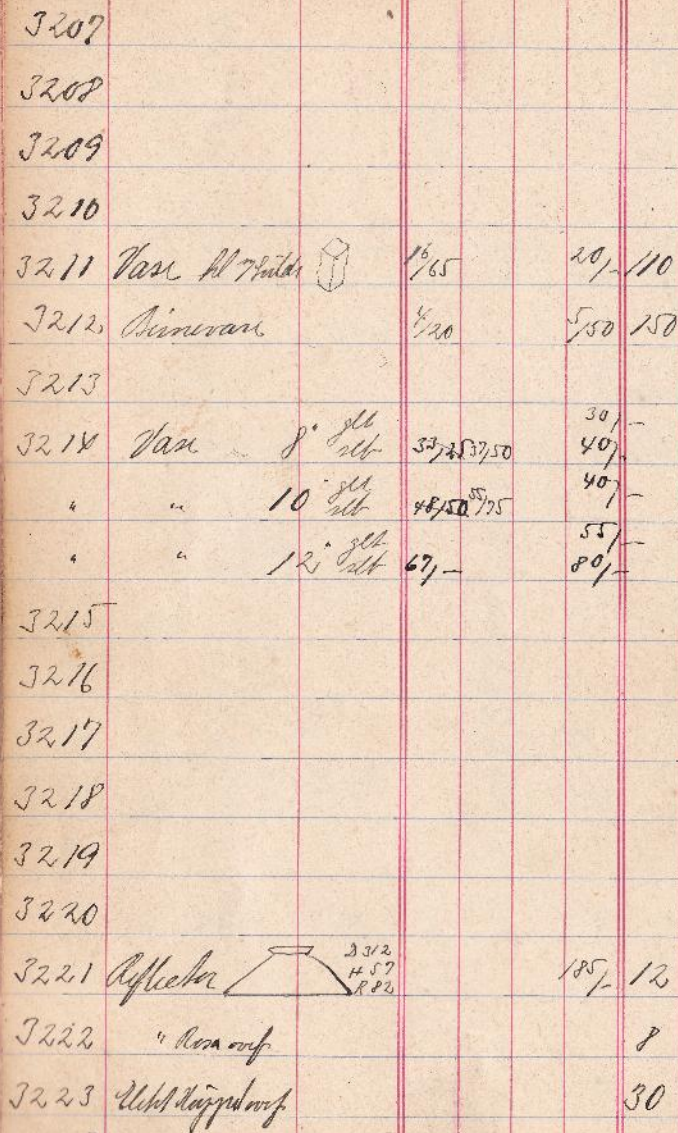 3207
3208
3209
3210
3211 Vase hl 16/65 20/- 110
3212 Birnevase 4/20 5/50 150
3213
30/-
3214 Vase 8" glt slb 33/25 37/50 40/-
" " 10" glt slb 48/50 55/75 40/-
55/-
" " 12" glt slb 67/- 80/-
3215
3216
3217
3218
3219
3220
3221 Reflector D 312 H 57 R 82 185/- 12
3222 " Rosa ovf 8
3223 ovf 30